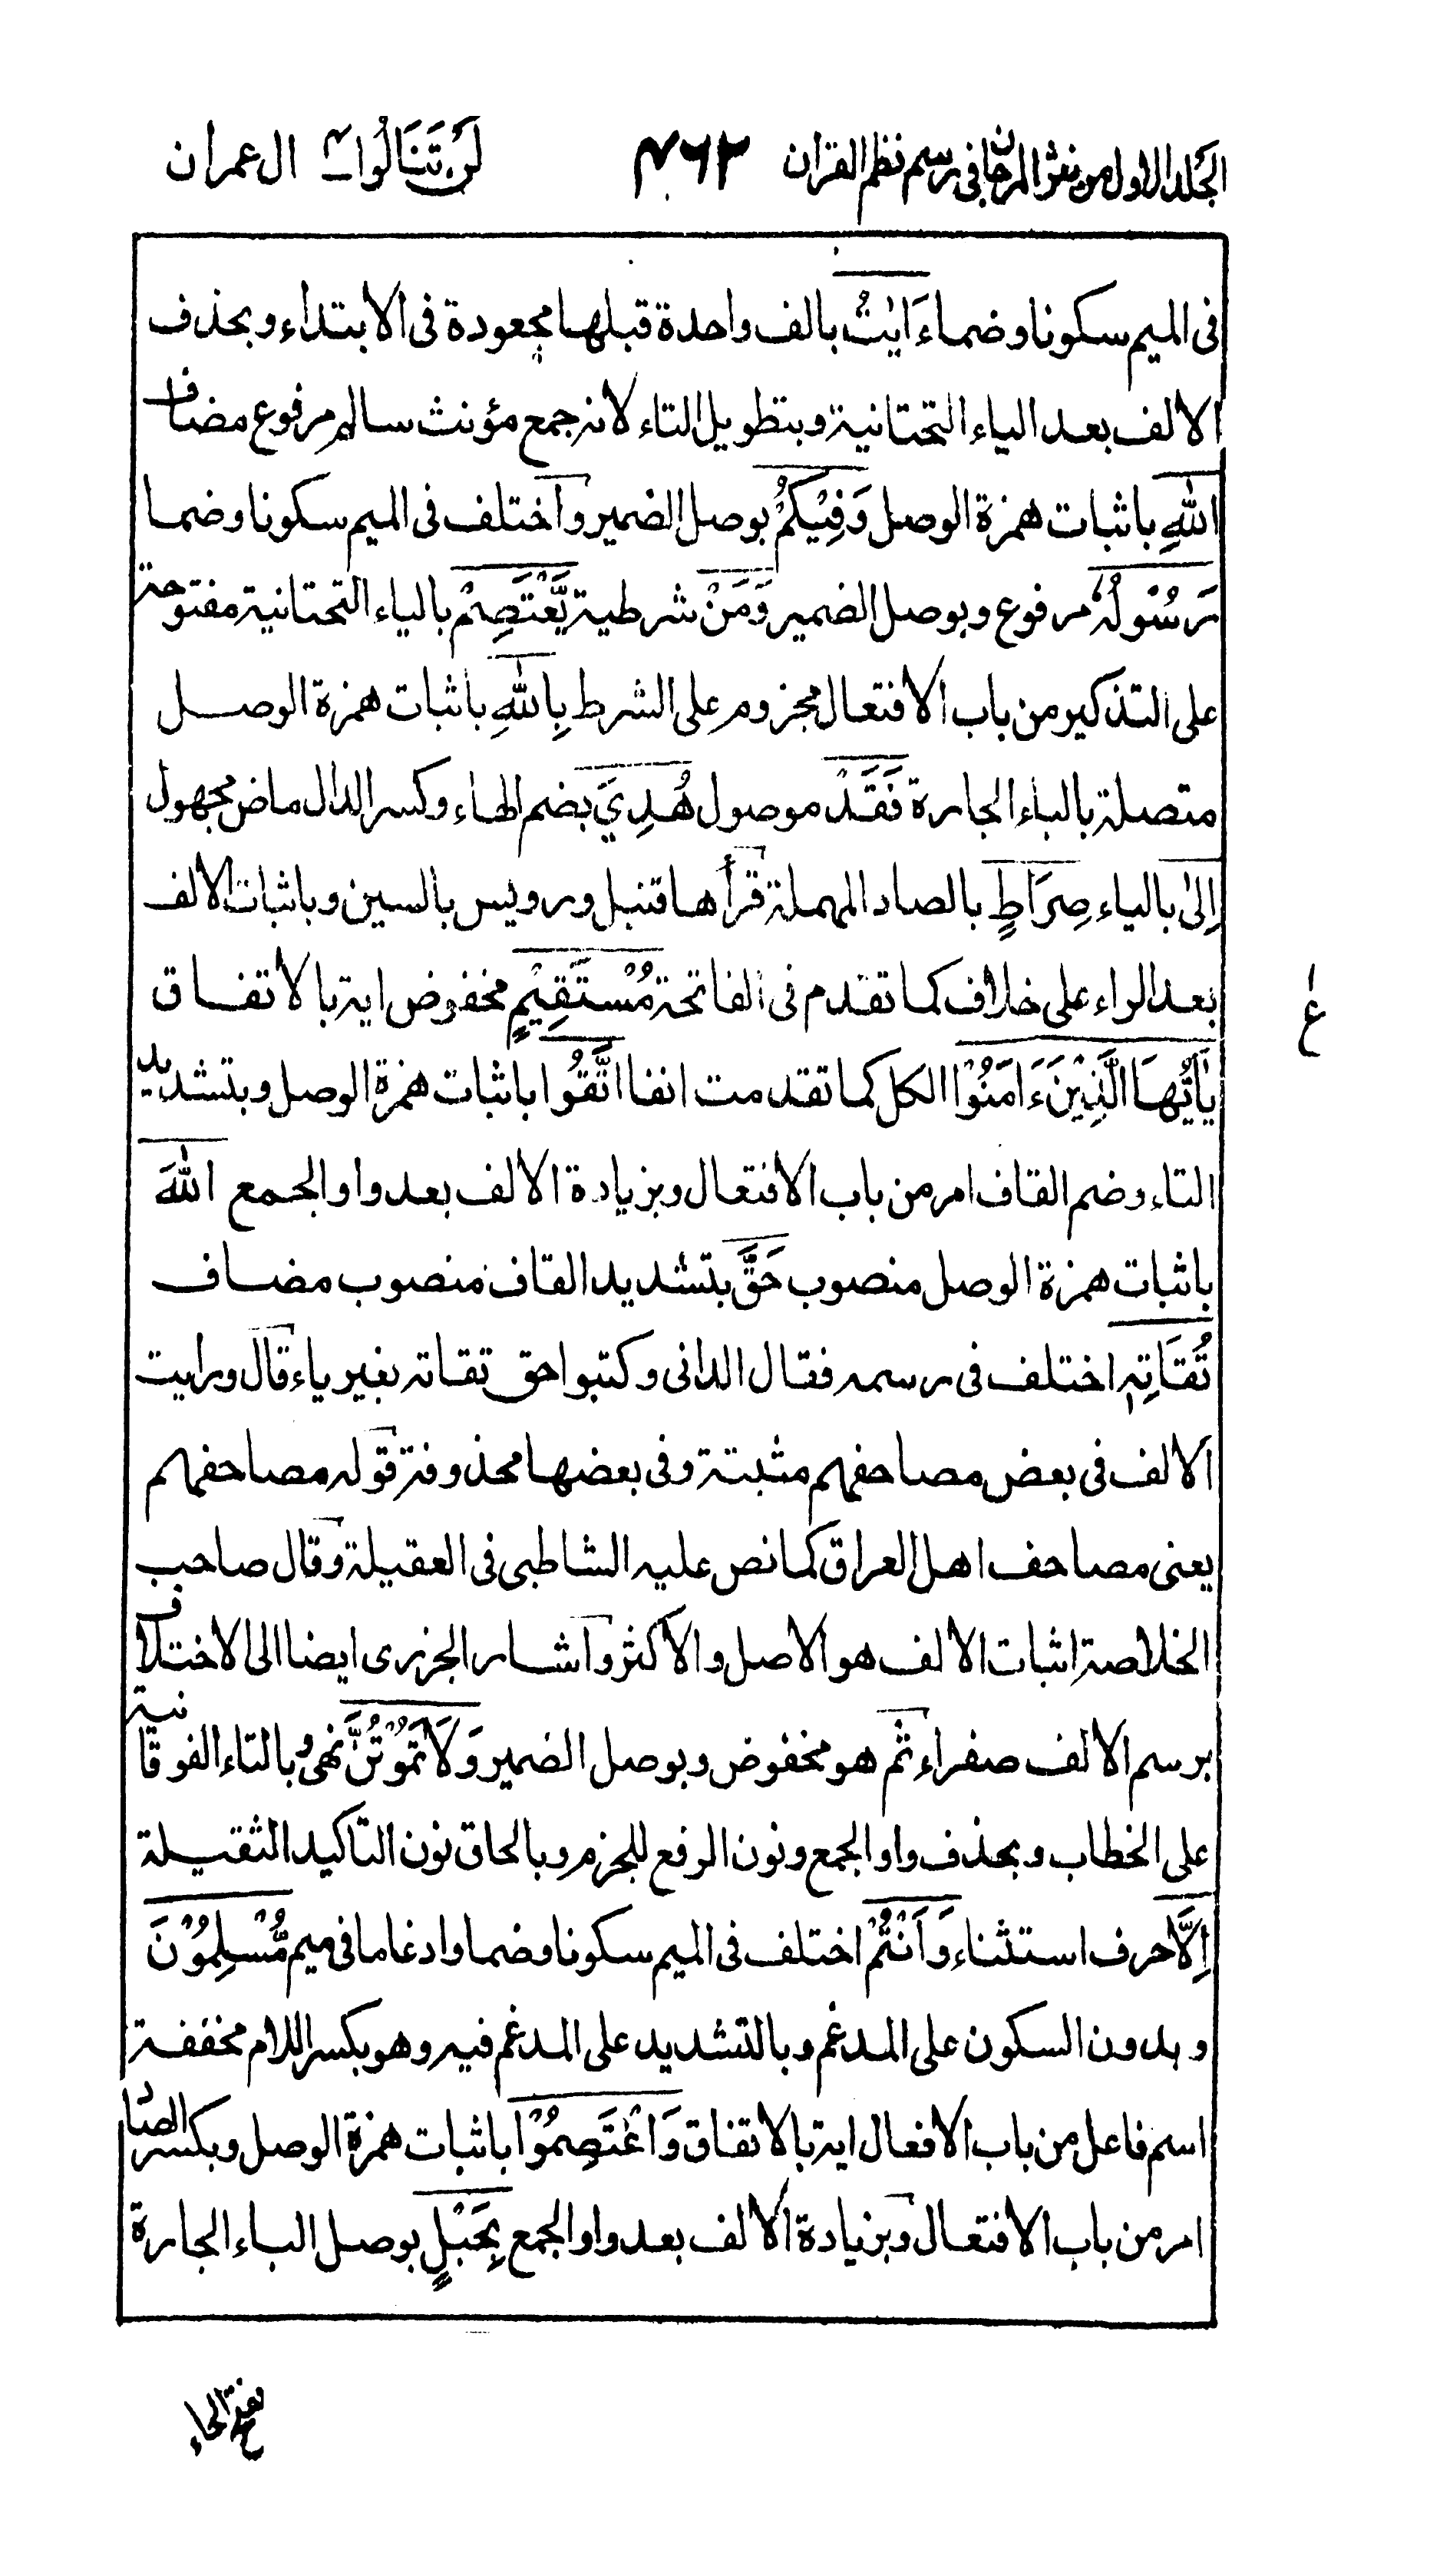 الجلد الاول من نثر المرجان في رسم نظم القران ٤٦٢ لَنْ تَنَالُوا ٤ ال عمران
فى الميم سكونا وضما ءَايٰتُ بالف واحدة قبلها مجعودة فى الابتداء وبحذف
الالف بعد الياء التحتانية وبتطويل التاء لانه جمع مؤنث سالم مرفوع مضاف
اللهِ باثبات همزة الوصل وَفِيْكُمْ بوصل الضمير واختلف فى الميم سكونا وضما
رَسُوْلُهٗ مرفوع وبوصل الضمير وَمَنْ شرطية يَّعْتَصِمْ بالياء التحتانية مفتوحة
على التذكير من باب الافتعال مجزوم على الشرط بِاللهِ باثبات همزة الوصل
متصلة بالباء الجارة فَقَدْ موصول هُدِيَ بضم الهاء وكسر الدال ماض مجهول
اِلىٰ بالياء صِرَاطٍ بالصاد المهملة قرأها قنبل ورويس بالسين وباثبات الالف
بعد الراء على خلاف كما تقدم فى الفاتحة مُسْتَقِيْمٍ مخفوض اية بالاتفاق
ع
يٰاَيُّهَا الَّذِيْنَ ءَامَنُوْا الكل كما تقدمت انفا اتَّقُوا باثبات همزة الوصل وبتشديد
التاء وضم القاف امر من باب الافتعال وبزيادة الالف بعد واو الجمع اللهَ
باثبات همزة الوصل منصوب حَقَّ بتشديد القاف منصوب مضاف
تُقَاتِهٖ اختلف فى رسمه فقال الدانى وكتبوا حق تقاته بغير ياء قال ورايت
الالف فى بعض مصاحفهم مثبتة وفى بعضها محذوفة قوله مصاحفهم
يعنى مصاحف اهل العراق كما نص عليه الشاطبى فى العقيلة وقال صاحب
الخلاصة اثبات الالف هو الاصل والاكثر واشار الجزرى ايضا الى الاختلاف
برسم الالف صفراء ثم هو مخفوض وبوصل الضمير وَلَا تَمُوْتُنَّ نهى وبالتاء الفوقانية
على الخطاب وبحذف واو الجمع ونون الرفع للجزم وبالحاق نون التاكيد الثقيلة
اِلَّا حرف استثناء وَاَنْتُمْ اختلف فى الميم سكونا وضما وادغاما فى ميم مُّسْلِمُوْنَ
وبدون السكون على المدغم وبالتشديد على المدغم فيه وهو بكسر اللام مخففة
اسم فاعل من باب الافعال اية بالاتفاق وَاعْتَصِمُوْا باثبات همزة الوصل وبكسر الصاد
امر من باب الافتعال وبزيادة الالف بعد واو الجمع بِحَبْلِ بوصل الباء الجارة
بفتح الحاء